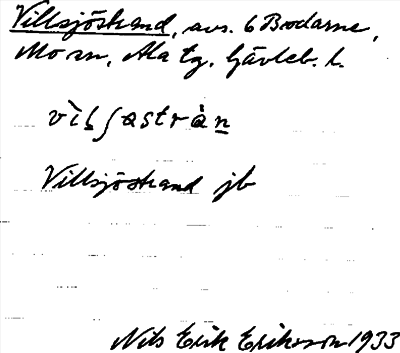 Villsjöstrand, avs. 6 Bodarne,
Mo sn, Ala tg. Gävleb. l.
vìḷʃastràn̲
Villsjöstrand jb
Nils Erik Eriksson 1933